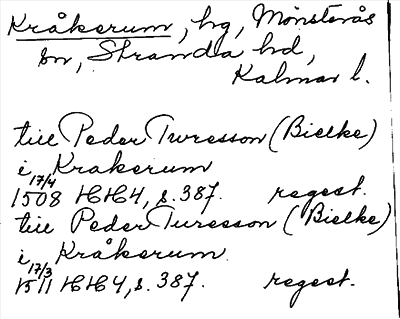 Kråkerum, hg, Mönsterås
sn, Stranda hd,
Kalmar l.
till Peder Turesson (Bielke)
i Krakerum
17/4
1508 HH4, s. 387. regest.
till Peder Turesson (Bielke)
i Kråkerum
17/3
1511 HH4, s. 387. regest.